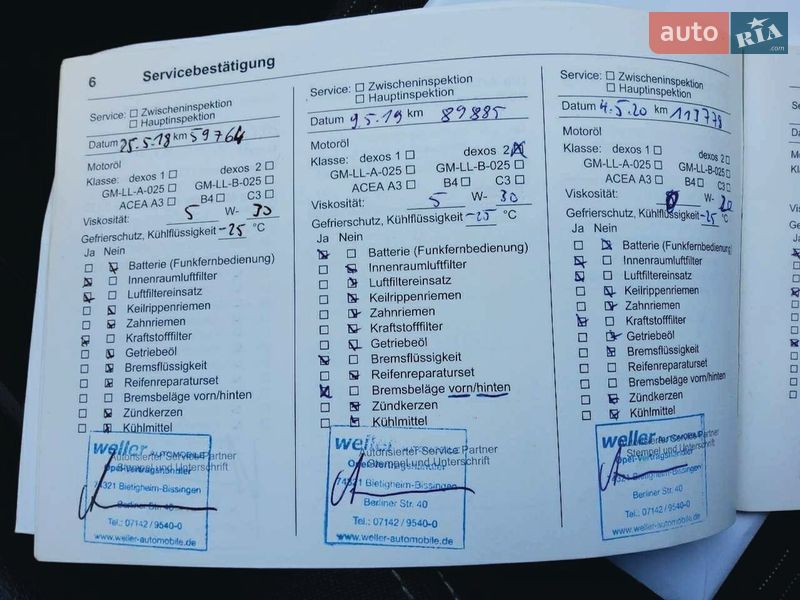 auto RIA.com
6 Servicebestätigung
Service: Zwischeninspektion
Hauptinspektion
Datum 25.5.18 km 59764
Motoröl
Klasse: dexos 1 dexos 2
GM-LL-A-025 GM-LL-B-025
ACEA A3 B4 C3
Viskosität: 5 W- 30
Gefrierschutz, Kühlflüssigkeit -25 °C
Ja Nein
Batterie (Funkfernbedienung)
Innenraumluftfilter
Luftfiltereinsatz
Keilrippenriemen
Zahnriemen
Kraftstofffilter
Getriebeöl
Bremsflüssigkeit
Reifenreparaturset
Bremsbeläge vorn/hinten
Zündkerzen
Kühlmittel
weller AUTOMOBILE
Autorisierter Service Partner
Stempel und Unterschrift
Opel-Vertragshändler
74321 Bietigheim-Bissingen
Berliner Str. 40
Tel.: 07142 / 9540-0
www.weller-automobile.de
Service: Zwischeninspektion
Hauptinspektion
Datum 9.5.19 km 89885
Motoröl
Klasse: dexos 1 dexos 2
GM-LL-A-025 GM-LL-B-025
ACEA A3 B4 C3
Viskosität: 5 W- 30
Gefrierschutz, Kühlflüssigkeit -25 °C
Ja Nein
Batterie (Funkfernbedienung)
Innenraumluftfilter
Luftfiltereinsatz
Keilrippenriemen
Zahnriemen
Kraftstofffilter
Getriebeöl
Bremsflüssigkeit
Reifenreparaturset
Bremsbeläge vorn/hinten
Zündkerzen
Kühlmittel
weller
Autorisierter Service Partner
Stempel und Unterschrift
74321 Bietigheim-Bissingen
Berliner Str. 40
Tel.: 07142 / 9540-0
www.weller-automobile.de
Service: Zwischeninspektion
Hauptinspektion
Datum 4.5.20 km 113778
Motoröl
Klasse: dexos 1 dexos 2
GM-LL-A-025 GM-LL-B-025
ACEA A3 B4 C3
Viskosität: 0 W- 20
Gefrierschutz, Kühlflüssigkeit -25 °C
Ja Nein
Batterie (Funkfernbedienung)
Innenraumluftfilter
Luftfiltereinsatz
Keilrippenriemen
Zahnriemen
Kraftstofffilter
Getriebeöl
Bremsflüssigkeit
Reifenreparaturset
Bremsbeläge vorn/hinten
Zündkerzen
Kühlmittel
weller AUTOMOBILE
Autorisierter Service Partner
Opel-Vertragshändler
Stempel und Unterschrift
74321 Bietigheim-Bissingen
Berliner Str. 40
Tel.: 07142 / 9540-0
www.weller-automobile.de